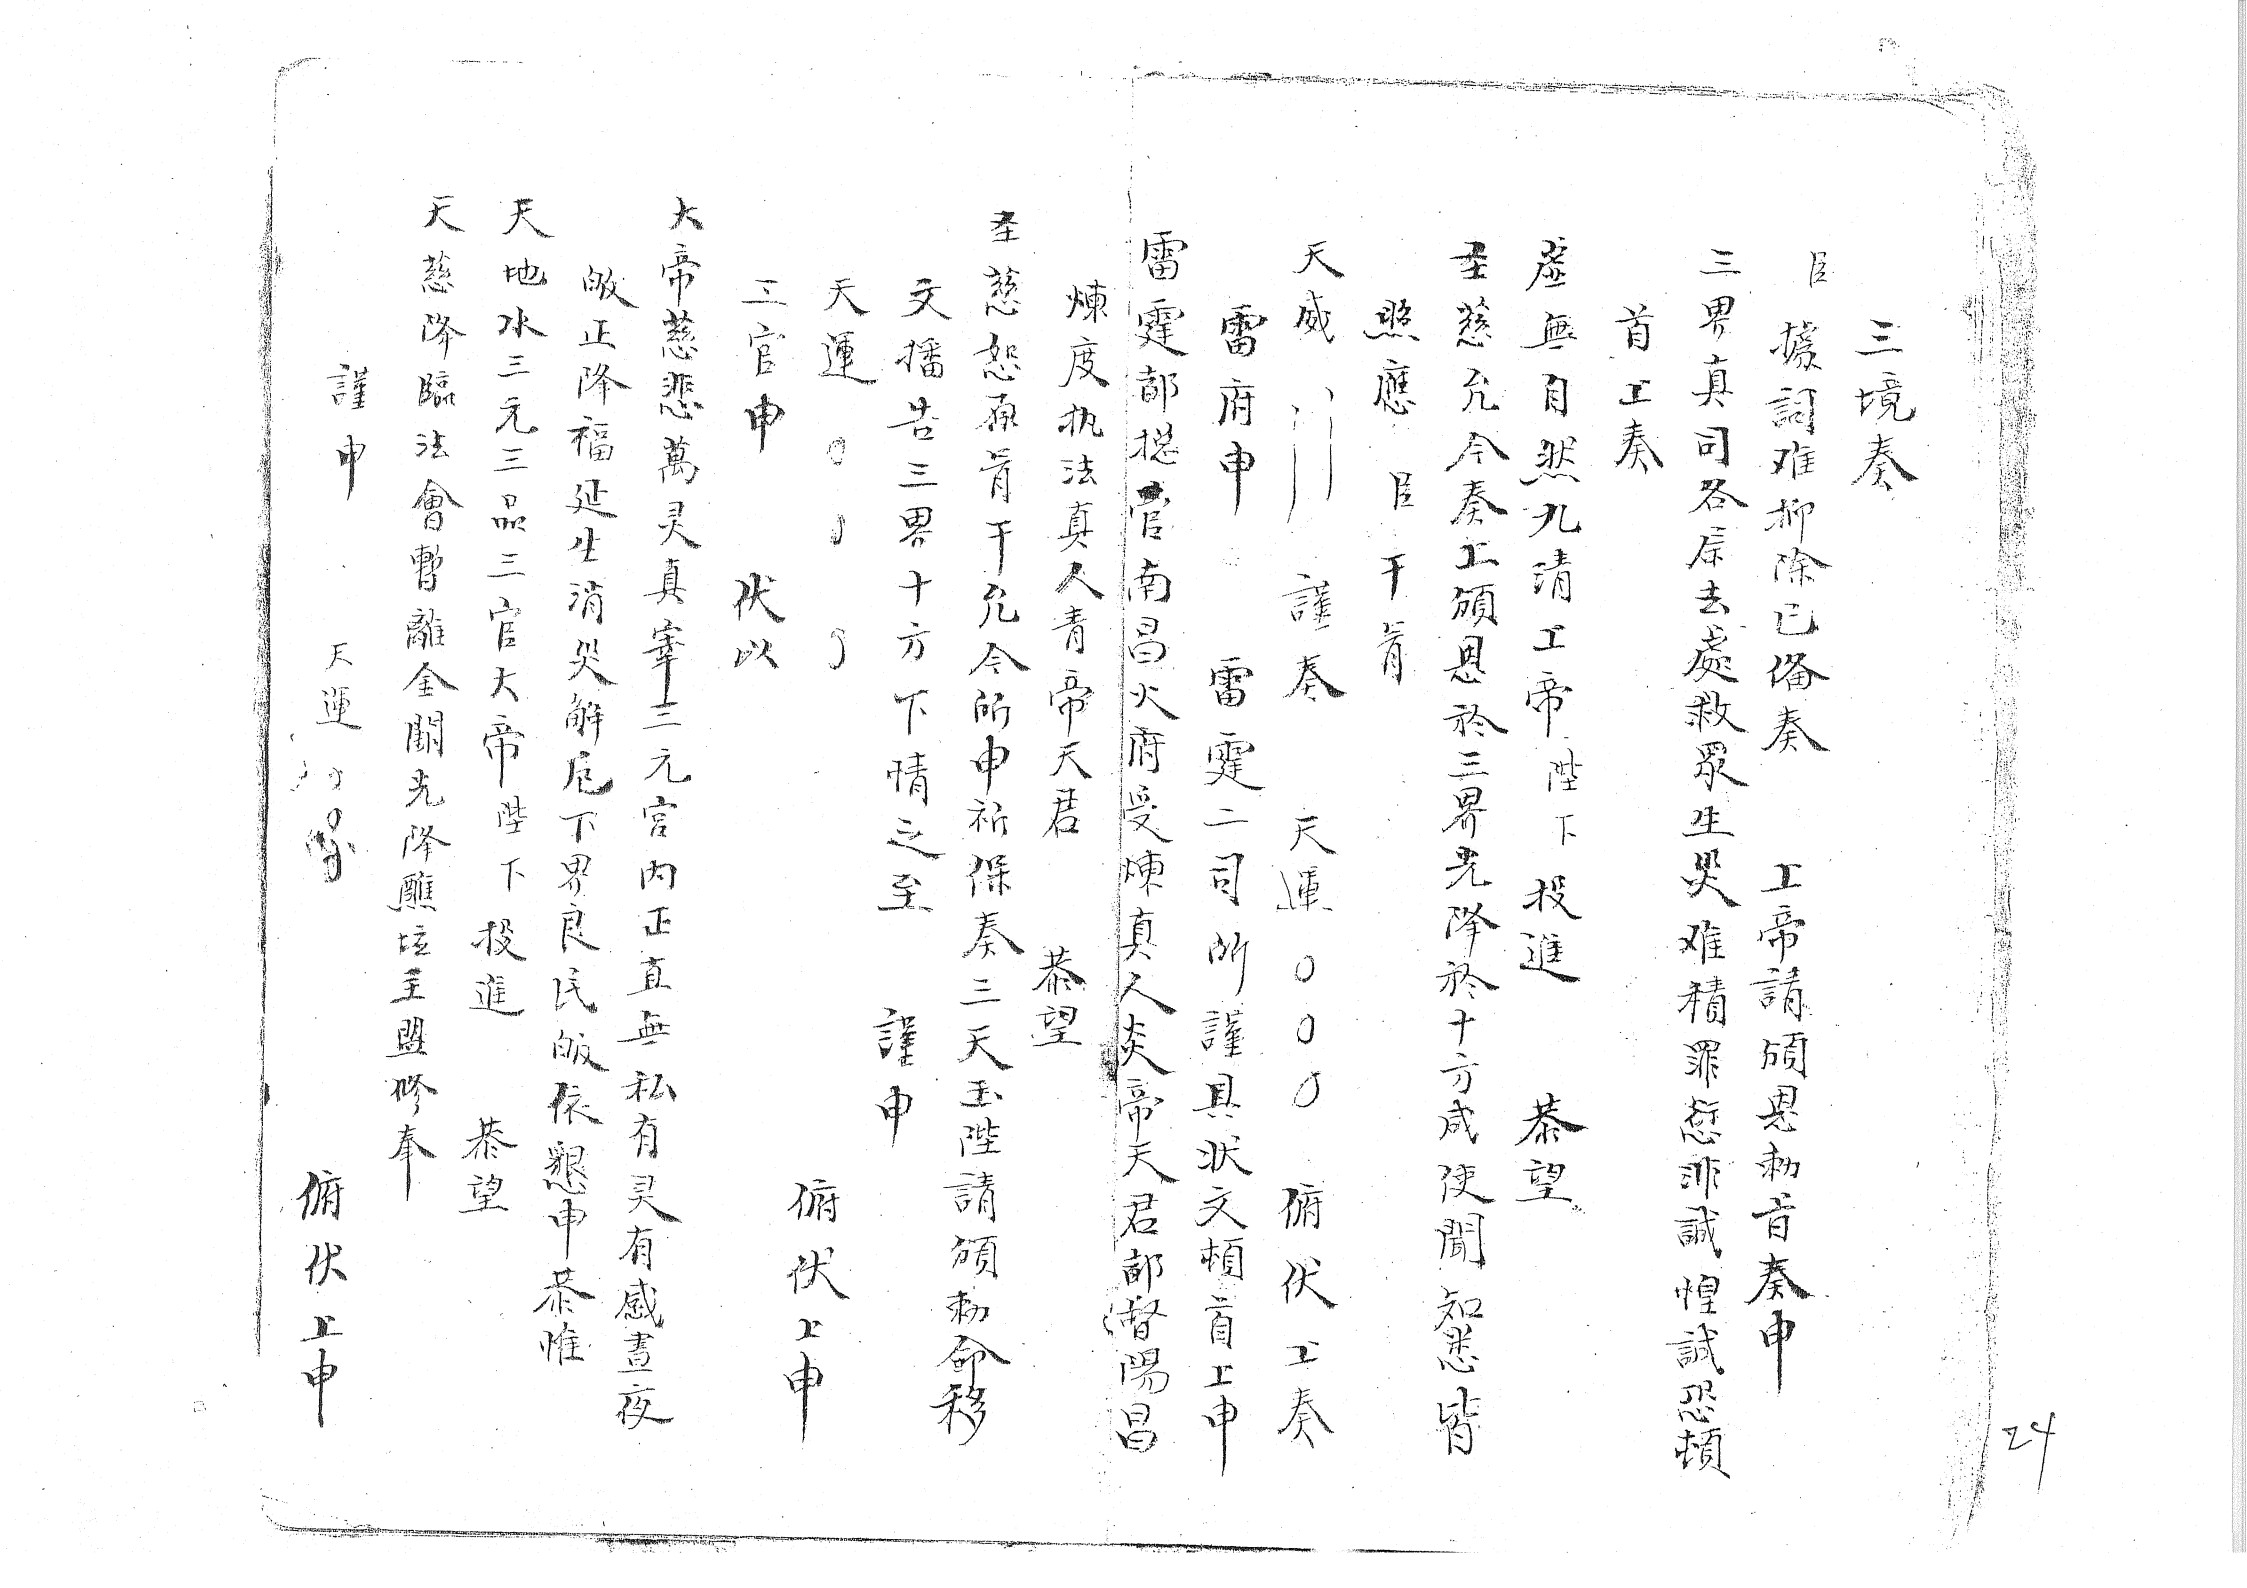 三境奏
臣據詞难抑除已俻奏 上帝請頒恩勅旨奏申
三界真司各庙去處救眾生災难積罪愆誹誠惶誠恐頓
首上奏
虛無自然九清上帝陛下投進 恭望
圣慈允今奏上頒恩於三界光降於十方咸使聞知悉皆
照應 臣干冐
天威 謹奏 天運〇〇〇 俯伏上奏
雷府申 雷霆二司所謹具狀文頓首上申
雷霆都總官南昌火府受煉真人炎帝天君都督陽昌
煉度执法真人青帝天君 恭望
圣慈恕原冐干允今所申祈保奏三天玉陛請頒勅命移
文播告三界十方下情之至 謹申
天運〇〇〇 俯伏上申
三官申 伏以
大帝慈悲萬灵真宰三元宮内正直無私有灵有感晝夜
皈正降福延生消災解厄下界良民皈依懇申恭惟
天地水三元三品三官大帝陛下投進 恭望
天慈降臨法會暫離金闕光降醮坛主盟修奉
謹申 天運 俯伏上申
24